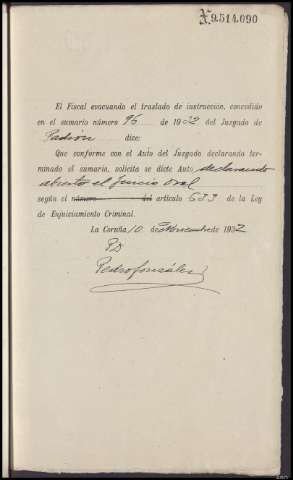 N.9.514.090
El Fiscal evacuando el traslado de instrucción, concedido
en el sumario número 96 de 1932 del Juzgado de
Padrón dice:
Que conforme con el Auto del Juzgado declarando ter-
minado el sumario, solicita se dicte Auto declarando
abierto el juicio oral
según el número del artículo 633 de la Ley
de Enjuiciamiento Criminal.
La Coruña 10 de Noviembre de 1932
PD
Pedro González